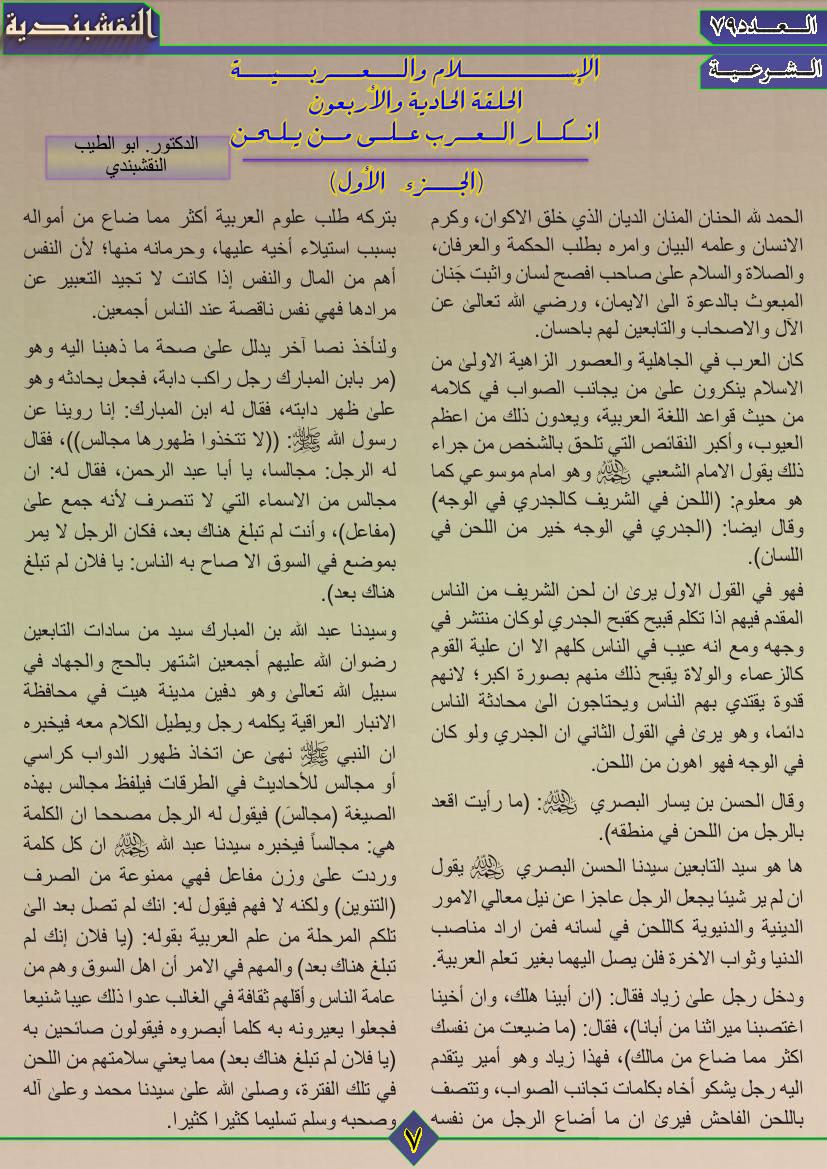 النقشبندية
العدد ٧٩
الشرعية
الإسلام والعربية
الحلقة الحادية والأربعون
انكار العرب على من يلحن
(الجزء الأول)
الدكتور. ابو الطيب
النقشبندي
الحمد لله الحنان المنان الديان الذي خلق الاكوان، وكرم
الانسان وعلمه البيان وامره بطلب الحكمة والعرفان،
والصلاة والسلام على صاحب افصح لسان واثبت جَنان
المبعوث بالدعوة الى الايمان، ورضي الله تعالى عن
الآل والاصحاب والتابعين لهم باحسان.
كان العرب في الجاهلية والعصور الزاهية الاولى من
الاسلام ينكرون على من يجانب الصواب في كلامه
من حيث قواعد اللغة العربية، ويعدون ذلك من اعظم
العيوب، وأكبر النقائص التي تلحق بالشخص من جراء
ذلك يقول الامام الشعبي رحمه الله وهو امام موسوعي كما
هو معلوم: (اللحن في الشريف كالجدري في الوجه)
وقال ايضا: (الجدري في الوجه خير من اللحن في
اللسان).
فهو في القول الاول يرى ان لحن الشريف من الناس
المقدم فيهم اذا تكلم قبيح كقبح الجدري لوكان منتشر في
وجهه ومع انه عيب في الناس كلهم الا ان علية القوم
كالزعماء والولاة يقبح ذلك منهم بصورة اكبر؛ لانهم
قدوة يقتدي بهم الناس ويحتاجون الى محادثة الناس
دائما، وهو يرى في القول الثاني ان الجدري ولو كان
في الوجه فهو اهون من اللحن.
وقال الحسن بن يسار البصري رحمه الله: (ما رأيت اقعد
بالرجل من اللحن في منطقه).
ها هو سيد التابعين سيدنا الحسن البصري رحمه الله يقول
ان لم ير شيئا يجعل الرجل عاجزا عن نيل معالي الامور
الدينية والدنيوية كاللحن في لسانه فمن اراد مناصب
الدنيا وثواب الاخرة فلن يصل اليهما بغير تعلم العربية.
ودخل رجل على زياد فقال: (ان أبينا هلك، وان أخينا
اغتصبنا ميراثنا من أبانا)، فقال: (ما ضيعت من نفسك
اكثر مما ضاع من مالك)، فهذا زياد وهو أمير يتقدم
اليه رجل يشكو أخاه بكلمات تجانب الصواب، وتتصف
باللحن الفاحش فيرى ان ما أضاع الرجل من نفسه
بتركه طلب علوم العربية أكثر مما ضاع من أمواله
بسبب استيلاء أخيه عليها، وحرمانه منها؛ لأن النفس
أهم من المال والنفس إذا كانت لا تجيد التعبير عن
مرادها فهي نفس ناقصة عند الناس أجمعين.
ولنأخذ نصا آخر يدلل على صحة ما ذهبنا اليه وهو
(مر بابن المبارك رجل راكب دابة، فجعل يحادثه وهو
على ظهر دابته، فقال له ابن المبارك: إنا روينا عن
رسول الله ﷺ: ((لا تتخذوا ظهورها مجالس))، فقال
له الرجل: مجالسا، يا أبا عبد الرحمن، فقال له: ان
مجالس من الاسماء التي لا تنصرف لأنه جمع على
(مفاعل)، وأنت لم تبلغ هناك بعد، فكان الرجل لا يمر
بموضع في السوق الا صاح به الناس: يا فلان لم تبلغ
هناك بعد).
وسيدنا عبد الله بن المبارك سيد من سادات التابعين
رضوان الله عليهم أجمعين اشتهر بالحج والجهاد في
سبيل الله تعالى وهو دفين مدينة هيت في محافظة
الانبار العراقية يكلمه رجل ويطيل الكلام معه فيخبره
ان النبي ﷺ نهى عن اتخاذ ظهور الدواب كراسي
أو مجالس للأحاديث في الطرقات فيلفظ مجالس بهذه
الصيغة (مجالسَ) فيقول له الرجل مصححا ان الكلمة
هي: مجالساً فيخبره سيدنا عبد الله رحمه الله ان كل كلمة
وردت على وزن مفاعل فهي ممنوعة من الصرف
(التنوين) ولكنه لا فهم فيقول له: انك لم تصل بعد الى
تلكم المرحلة من علم العربية بقوله: (يا فلان إنك لم
تبلغ هناك بعد) والمهم في الامر أن اهل السوق وهم من
عامة الناس وأقلهم ثقافة في الغالب عدوا ذلك عيبا شنيعا
فجعلوا يعيرونه به كلما أبصروه فيقولون صائحين به
(يا فلان لم تبلغ هناك بعد) مما يعني سلامتهم من اللحن
في تلك الفترة، وصلى الله على سيدنا محمد وعلى آله
وصحبه وسلم تسليما كثيرا كثيرا.
٧